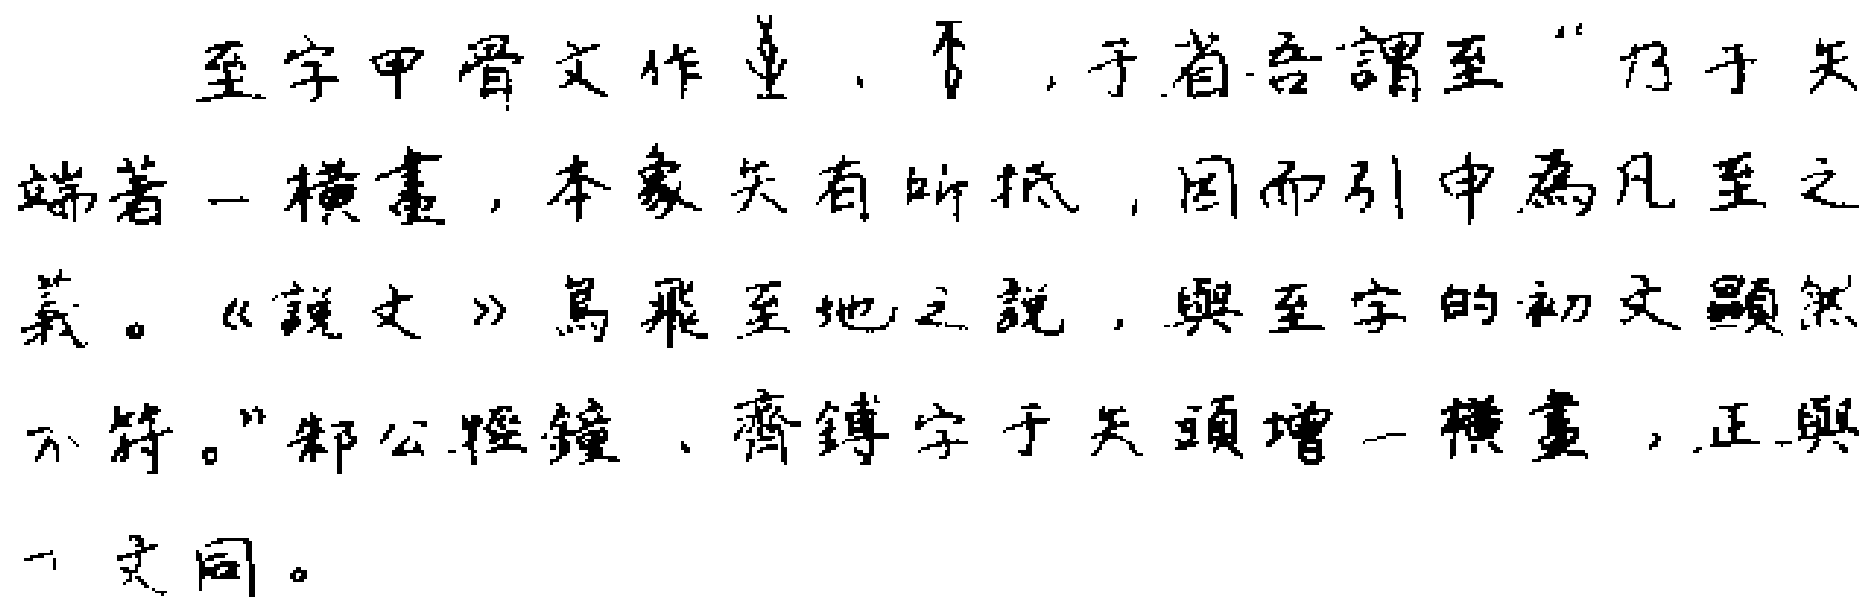 至字甲骨文作、，于省吾謂至“乃于矢
端著一橫畫，本象矢有所抵，因而引申為凡至之
義。《說文》鳥飛至地之說，與至字的初文顯然
不符。”邾公牼鐘、齊鎛字于矢頭增一橫畫，正與
文同。